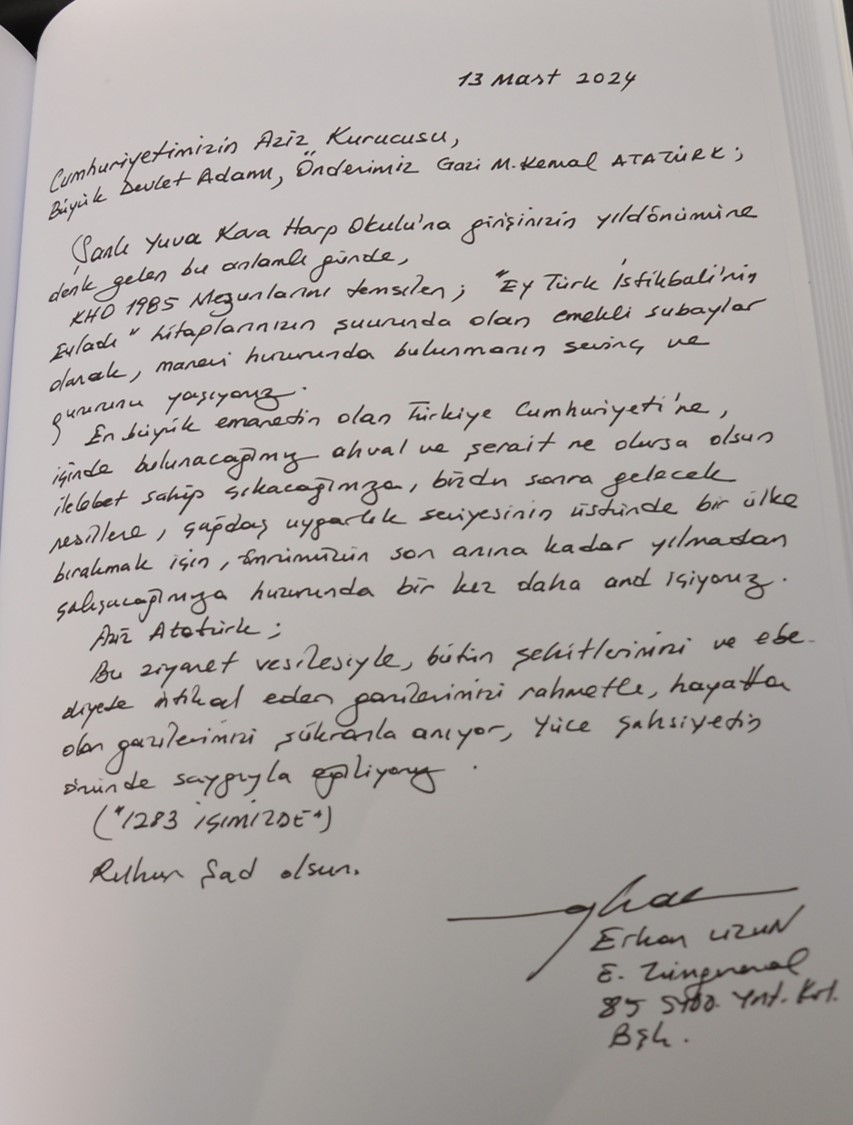 13 Mart 2024
Cumhuriyetimizin Aziz Kurucusu,
Büyük Devlet Adamı, Önderimiz Gazi M. Kemal ATATÜRK;
Şanlı Yuva Kara Harp Okulu'na girişinizin yıldönümüne
denk gelen bu anlamlı günde,
KHO 1985 Mezunlarını temsilen; "Ey Türk İstikbali'nin
Evladı" hitaplarınızın şuurunda olan emekli subaylar
olarak, manevi huzurunda bulunmanın sevinç ve
gururunu yaşıyoruz.
En büyük emanetin olan Türkiye Cumhuriyeti'ne,
içinde bulunacağımız ahval ve şerait ne olursa olsun
ilelebet sahip çıkacağımıza, bizden sonra gelecek
nesillere, çağdaş uygarlık seviyesinin üstünde bir ülke
bırakmak için, ömrümüzün son anına kadar yılmadan
çalışacağımıza huzurunda bir kez daha and içiyoruz.
Aziz Atatürk;
Bu ziyaret vesilesiyle, bütün şehitlerimizi ve ebe-
diyete intikal eden gazilerimizi rahmetle, hayatta
olan gazilerimizi şükranla anıyor, Yüce şahsiyetin
önünde saygıyla eğiliyoruz.
("1283 İÇİMİZDE")
Ruhun Şad olsun.
Erkan UZUN
E. Tümgeneral
85 Ynt. Krl.
Bşk.